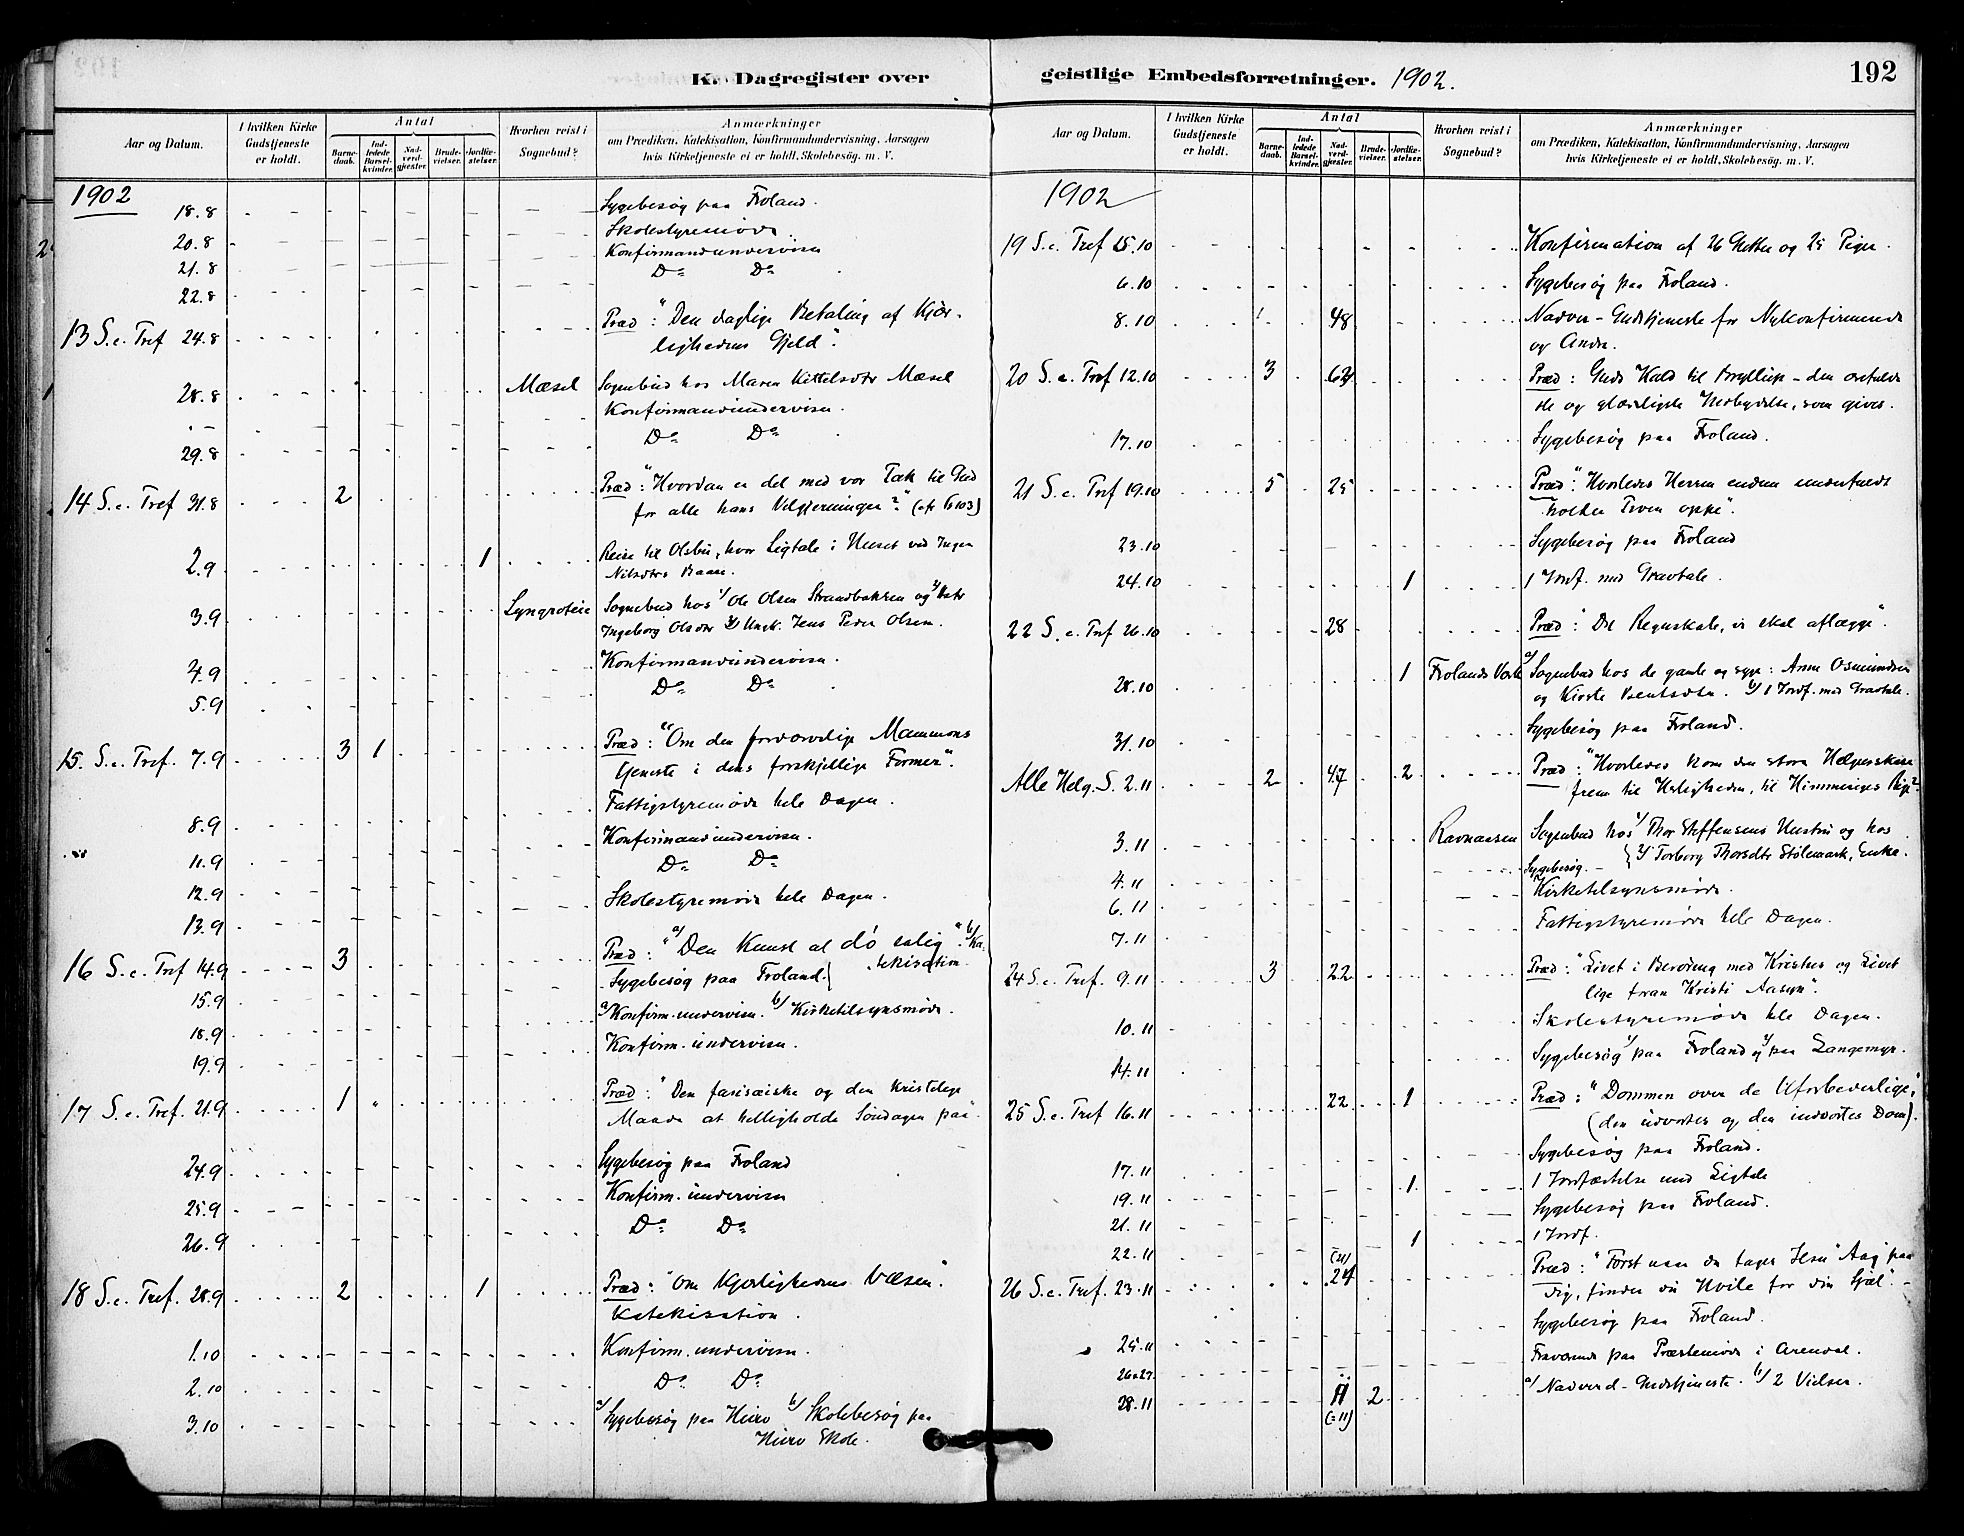 K. Dagregister over
Aar og Datum.
I hvilken Kirke Gudstjeneste er holdt.
Antal
Barne-daab.
Ind-ledede Barsel-kvinder.
Nad-verd-gjester.
Brude-vielser.
Jordfæ-stelser.
Hvorhen reist i Sognebud?
Anmærkninger
om Prædiken, Katekisation, Konfirmandundervisning, Aarsagen
hvis Kirketjeneste ei er holdt, Skolebesøg. m. V.
1902
18.8 Sygebesøg paa Froland.
20.8 Skolestyremøde.
21.8 Konfirmandundervisn
22.8 Do Do
13 S. e. Tref 24.8 Præd: "Den daglige Betaling af Kjær-
lighedens Gjeld".
28.8 Mæsel Sognebud hos Maren Kittelsdtr Mæsel
" — Konfirmandundervisn.
29.8 Do Do
14 S. e. Tref 31.8 2 Præd: "Hvordan er det med vor Tak til Gud
for alle hans Velgjerninger?" (cfr ψ 103)
2.9 1 Reise til Olsbu, hvor Ligtale i Huset ved Ingen
Nilsdtrs Baare.
3.9 Lyngroteie Sognebud hos 1/ Ole Olsen Strandbakken og 2/ Datr
Ingeborg Olsdtr 3/ Ungk. Jens Peder Olsen.
4.9 Konfirmandundervisn.
5.9 Do Do
15. S. e. Tref. 7.9 3 1 Præd: "Om den fordærvelige Mammons
tjeneste i dens forskjellige Former".
8.9 Fattigstyremøde hele Dagen.
11.9 Konfirmandundervisn.
12.9 Do Do
13.9 Skolestyremøde hele Dagen.
16 S. e. Tref 14.9 3 Præd: a/ "Den Kunst at dø salig". b/ Ka-
tekisation.
15.9 Sygebesøg paa Froland.
18.9 a/ Konfirm.undervisn. b/ Kirketilsynsmøde.
19.9 Konfirm.undervisn.
17 S. e. Tref. 21.9 1 " Præd: "Den farisæiske og den kristelige
Maade at helligholde Søndagen paa".
24.9 Sygebesøg paa Froland
25.9 Konfirm.undervisn
26.9 Do Do
18 S. e. Tref. 28.9 2 1 Præd: "Om Kjærlighedens Væsen".
Katekisation.
1.10 Konfirm.undervisn.
2.10 Do Do
3.10 a/ Sygebesøg paa Hiuro b/ Skolebesøg paa
Hiuro Skole.
geistlige Embedsforretninger. 1902.
192
Aar og Datum.
I hvilken Kirke Gudstjeneste er holdt.
Antal
Barne-daab.
Ind-ledede Barsel-kvinder.
Nad-verd-gjester.
Brude-vielser.
Jordfæ-stelser.
Hvorhen reist i Sognebud?
Anmærkninger
om Prædiken, Katekisation, Konfirmandundervisning, Aarsagen
hvis Kirketjeneste ei er holdt, Skolebesøg. m. V.
1902
19 S. e. Tref 5.10 Konfirmation af 26 Gutter og 25 Piger.
6.10 Sygebesøg paa Froland.
8.10 1 48 Nadver-Gudstjeneste for Nykonfirmerede
og Andre.
20 S. e. Tref 12.10 3 62 Præd: Guds Kald til Bryllup - den
og glædeligste Indbydelse, som gives.
17.10 Sygebesøg paa Froland.
21 S. e. Tref 19.10 5 25 Præd: "Hvorledes Herren endnu
holder Troen oppe".
23.10 Sygebesøg paa Froland
24.10 1 1 Jordf. med Gravtale.
22 S. e. Tref 26.10 28 Præd: "Det Regnskab, vi skal aflægge".
28.10 1 Frolands Værk a/ Sognebud hos de gamle og syge: Anne Osmundsen
og Kirste Bentsdtr. b/ 1 Jordf. med Gravtale.
31.10 Sygebesøg paa Froland.
Alle Helg. S. 2.11 2 47 2 Præd: "Hvorledes kom den store Helgenskare
frem til Herligheden, til Himmeriges Rige?"
3.11 Ravnaasen Sognebud hos 1/ Thor Steffensens Hustru og hos
2/ Torborg Thorsdtr Stølemark, Enke.
4.11 Sygebesøg.
6.11 Kirketilsynsmøde.
7.11 Fattigstyremøde hele Dagen.
24 S. e. Tref. 9.11 3 22 Præd: "Livet i Berøring med Kristus og Livet
lige foran Kristi Aasyn".
10.11 Skolestyremøde hele Dagen.
14.11 Sygebesøg 1/ paa Froland og 2/ paa Langemyr.
25 S. e. Tref 16.11 22 1 Præd: "Dommen over de Uforbederlige,"
(den udvortes og den indvortes Dom).
17.11 Sygebesøg paa Froland.
19.11 1 1 Jordfæstelse med Ligtale
21.11 Sygebesøg paa Froland.
22.11 1 1 Jordf.
26 S. e. Tref. 23.11 24 Præd: "Først naar du tager Jesu Aag paa
dig, finder du Hvile for din Sjæl".
25.11 Sygebesøg paa Froland.
26 & 27 Fraværende paa Præstemøde i Arendal.
28.11 11 (=11) 2 a/ Nadverd-Gudstjeneste. b/ 2 Vielser.